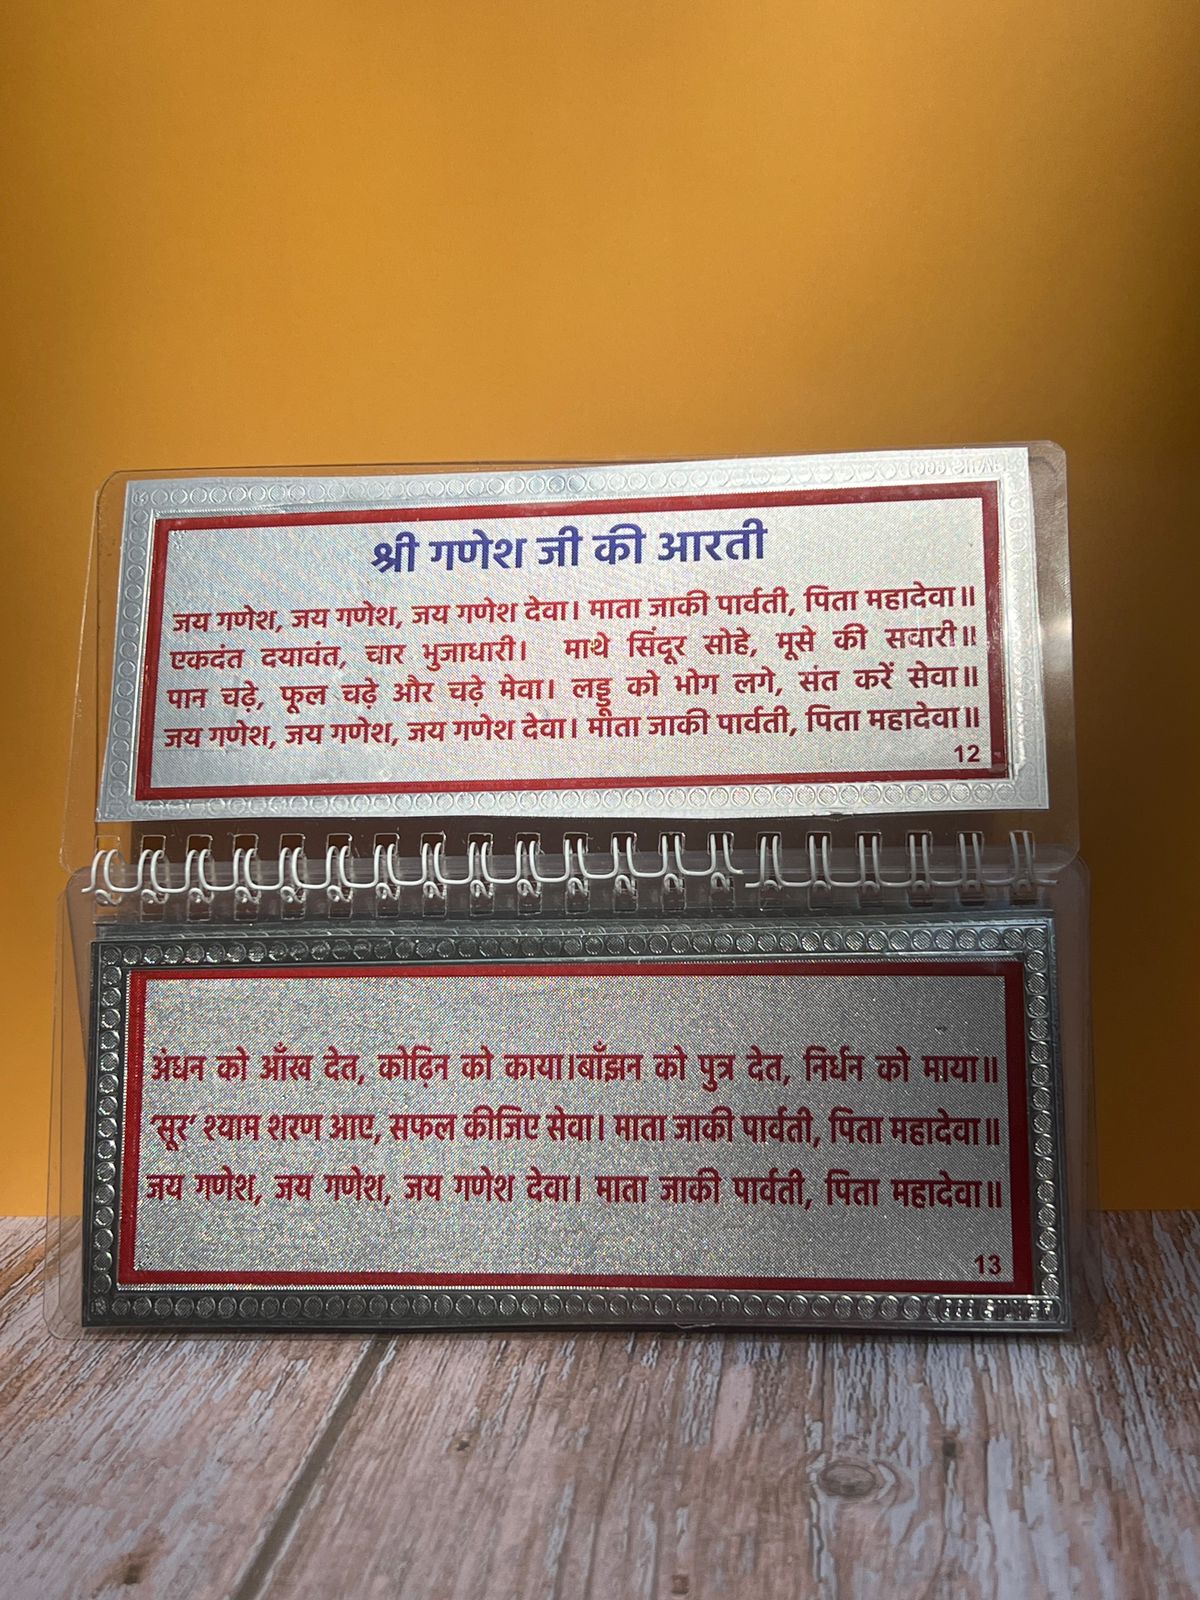 श्री गणेश जी की आरती
जय गणेश, जय गणेश, जय गणेश देवा। माता जाकी पार्वती, पिता महादेवा॥
एकदंत दयावंत, चार भुजाधारी। माथे सिंदूर सोहे, मूसे की सवारी॥
पान चढ़े, फूल चढ़े और चढ़े मेवा। लड्डू को भोग लगे, संत करें सेवा॥
जय गणेश, जय गणेश, जय गणेश देवा। माता जाकी पार्वती, पिता महादेवा॥
12
अंधन को आँख देत, कोढ़िन को काया।बाँझन को पुत्र देत, निर्धन को माया॥
'सूर' श्याम शरण आए, सफल कीजिए सेवा। माता जाकी पार्वती, पिता महादेवा॥
जय गणेश, जय गणेश, जय गणेश देवा। माता जाकी पार्वती, पिता महादेवा॥
13